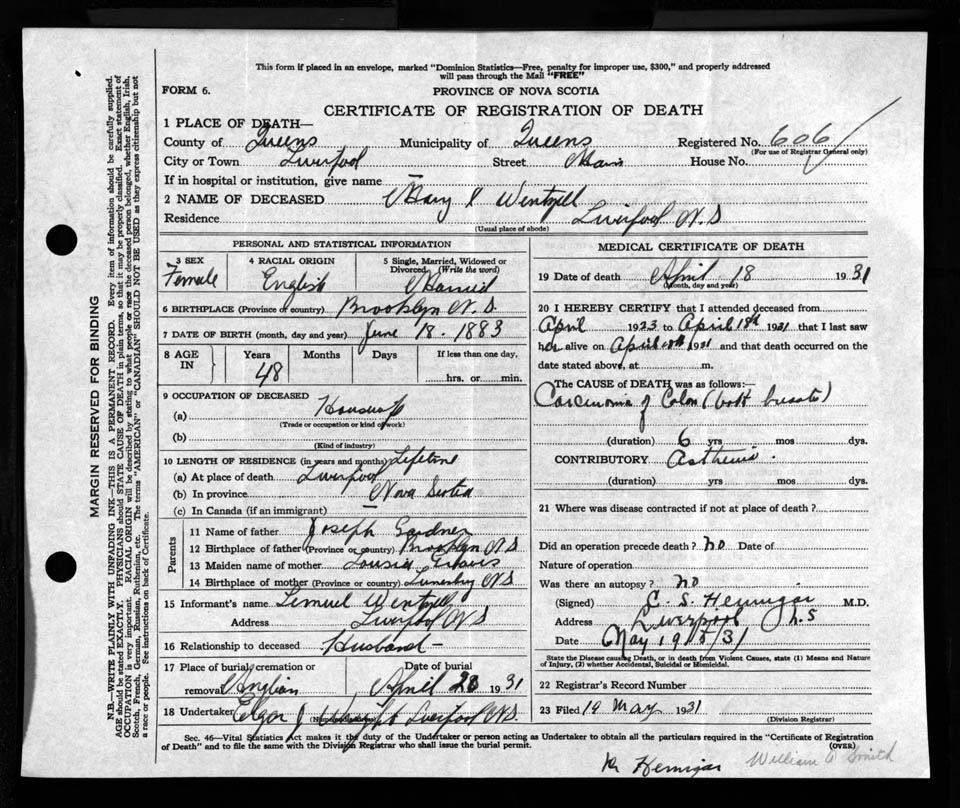 This form if placed in an envelope, marked "Dominion Statistics—Free, penalty for improper use, $300," and properly addressed
will pass through the Mail "FREE"
FORM 6.
PROVINCE OF NOVA SCOTIA
CERTIFICATE OF REGISTRATION OF DEATH
1 PLACE OF DEATH—
County of Queens Municipality of Queens Registered No. 606
(For use of Registrar General only)
City or Town Liverpool Street Main House No.
If in hospital or institution, give name —
2 NAME OF DECEASED Mary I Wentzell
Residence Liverpool N.S
(Usual place of abode)
PERSONAL AND STATISTICAL INFORMATION
3 SEX
Female
4 RACIAL ORIGIN
English
5 Single, Married, Widowed or
Divorced, (Write the word)
Married
6 BIRTHPLACE (Province or country) Brooklyn N.S.
7 DATE OF BIRTH (month, day and year) June 18. 1883
8 AGE IN Years Months Days If less than one day,
48
hrs. or min.
9 OCCUPATION OF DECEASED
(a) Housewife
(Trade or occupation or kind of work)
(b)
(Kind of industry)
10 LENGTH OF RESIDENCE (in years and months) Lifetime
(a) At place of death Liverpool
(b) In province Nova Scotia
(c) In Canada (if an immigrant) —
Parents
11 Name of father Joseph Gardner
12 Birthplace of father (Province or country) Brooklyn N.S
13 Maiden name of mother Louisa
14 Birthplace of mother (Province or country) Lunenburg N.S
15 Informant's name Lemuel Wentzell
Address Liverpool N.S
16 Relationship to deceased Husband —
17 Place of burial, cremation or Date of burial
removal Anglian April 20 1931
18 Undertaker Edgar J Wright Liverpool N.S.
MEDICAL CERTIFICATE OF DEATH
19 Date of death April 18 1931
(Month, day and year)
20 I HEREBY CERTIFY that I attended deceased from
April 1923 to April 18th 1931 that I last saw
her alive on April 1931 and that death occurred on the
date stated above, at m.
The CAUSE OF DEATH was as follows:—
Carcinoma of Colon (both breasts)
(duration) 6 yrs mos dys.
CONTRIBUTORY Asthenia.
(duration) yrs. mos. dys.
21 Where was disease contracted if not at place of death?
Did an operation precede death? no Date of
Nature of operation
Was there an autopsy? no
(Signed) C. S. Hennigar M.D.
Address Liverpool N.S
Date May 19th/31
State the Disease causing Death, or in death from Violent Causes, state (1) Means and Nature
of Injury, (2) whether Accidental, Suicidal or Homicidal.
22 Registrar's Record Number
23 Filed 19 May 1931
(Division Registrar)
Sec. 46—Vital Statistics Act makes it the duty of the Undertaker or person acting as Undertaker to obtain all the particulars required in the "Certificate of Registration
of Death" and to file the same with the Division Registrar who shall issue the burial permit.
(OVER)
Hennigar William Smith
MARGIN RESERVED FOR BINDING
N.B.—WRITE PLAINLY WITH UNFADING INK—THIS IS A PERMANENT RECORD. Every item of information should be carefully supplied.
AGE should be stated EXACTLY. PHYSICIANS should STATE CAUSE OF DEATH in plain terms, so that it may be properly classified. Exact statement of
OCCUPATION is very important. RACIAL ORIGIN will be described by stating to what people or race the deceased person belonged, whether English, Irish,
Scotch, French, German, Russian, Ruthenian, etc. The terms "AMERICAN" or "CANADIAN" SHOULD NOT BE USED as they express citizenship but not
a race or people. See instructions on back of Certificate.